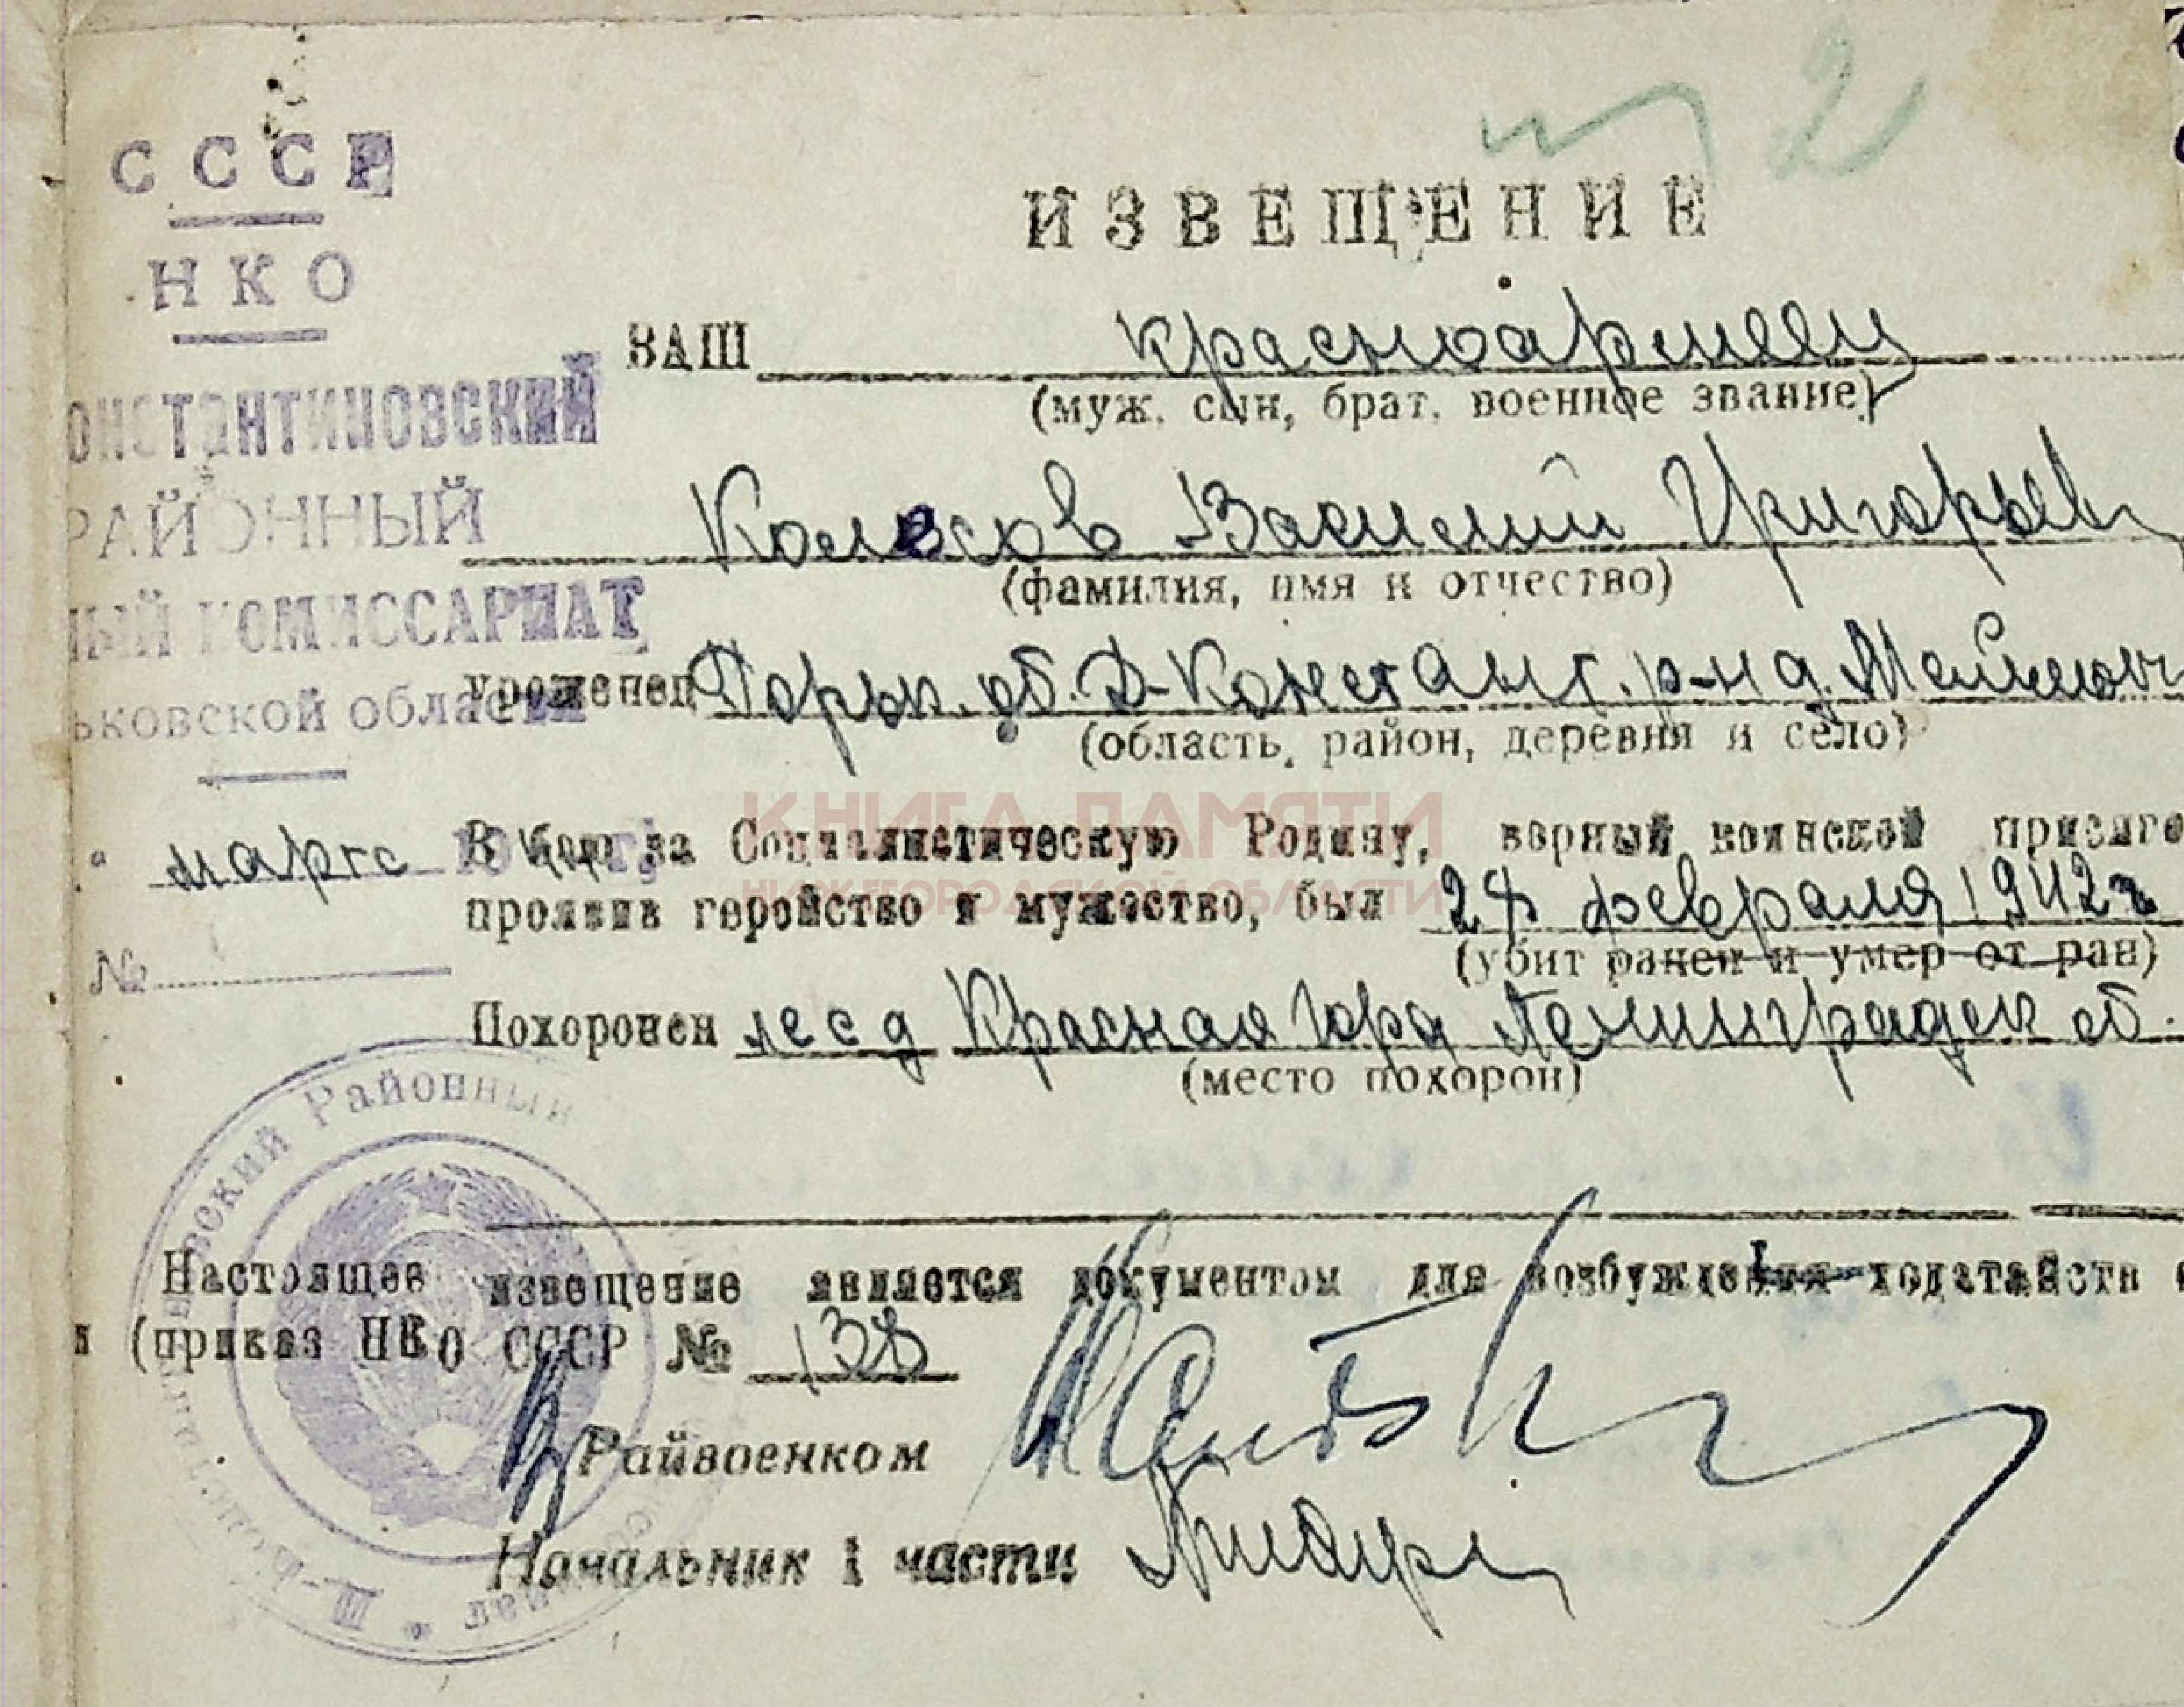 2
СССР
НКО
ОНСТАНТИНОВСКИЙ
РАЙОННЫЙ
НЫЙ КОМИССАРИАТ
ьковской области
марта
№
ИЗВЕЩЕНИЕ
ВАШ красноармеец
(муж, сын, брат, военное звание)
Колесов Василий Григорьев
(фамилия, имя и отчество)
уроженец Горьк. об. Д-Констант. р-н д.
(область, район, деревня и село)
КНИГА ПАМЯТИ
НИЖЕГОРОДСКОЙ ОБЛАСТИ
В бою за Социалистическую Родину, верный воинской присяге
проявив геройство и мужество, был февраля 1942г
(убит ранен и умер от ран)
Похоронен лес д Красная Гора Ленинградск об.
(место похорон)
Настоящее извещение является документом для возбуждения ходатайств
и (приказ НКО СССР № 138
Райвоенком
Начальник 1 части
вский Районный